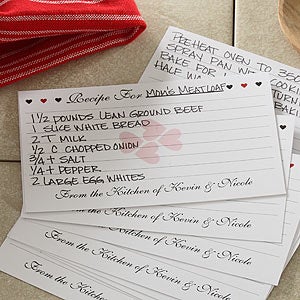 PREHEAT OVEN TO 350
SPRAY PAN WITH COOKING
BAKE FOR
HALF WA
Recipe For MOM'S MEATLOAF
1 1/2 POUNDS LEAN GROUND BEEF
1 SLICE WHITE BREAD
2 T MILK
1/2 C CHOPPED ONION
3/4 t SALT
1/4 t PEPPER
2 LARGE EGG WHITES
From the Kitchen of Kevin & Nicole
From the Kitchen of Kevin & Nicole
From the Kitchen of Kevin & Nicole